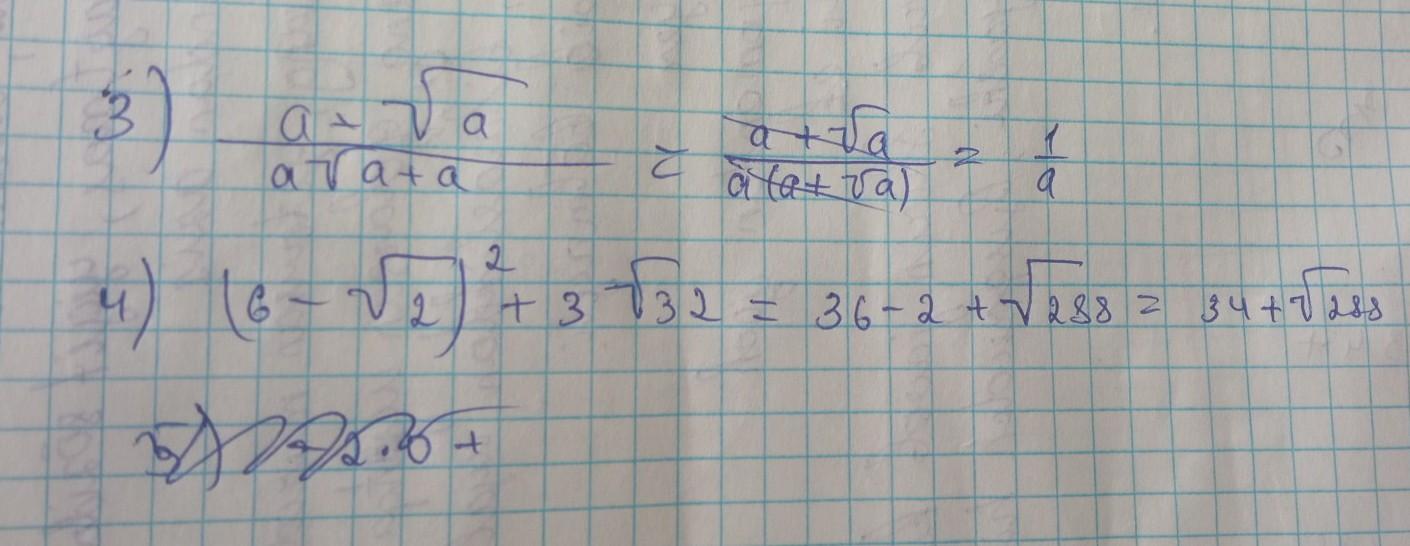 3) (a - √a)/(a√a+a) = (a+√a)/(a(a+√a)) = 1/a
4) (6 - √2)² + 3√32 = 36 - 2 + √288 = 34 + √288